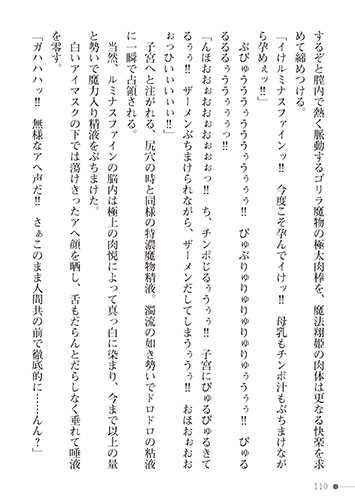 するぞと膣内で熱く脈動するゴリラ魔物の極太肉棒を、魔法翔姫の肉体は更なる快楽を求
めて締めつける。
「イけルミナスファインッ!! 今度こそ孕んでイけッ!! 母乳もチンポ汁もぶちまけなが
ら孕めぇッ!!」
ぷびゅううううううぅぅぅぅぅ!! びゅぶりゅりゅりゅりゅりゅりぅぅぅ!! びゅる
るるるぅううぅぅぅぅっ!!
「んほおぉぉおおおおおぉぉぉっ!! ち、チンポじるぅうぅぅ!! 子宮にぴゅるぴゅるきて
るぅぅ!! ザーメンぶちまけられながら、ザーメンだしてしまうぅううぅ!! おほおぉおお
おっひぃいぃいぃぃ!!」
子宮へと注がれる、尻穴の時と同様の特濃魔物精液。濁流の如き勢いでドロドロの粘液
に一瞬で占領される。
当然、ルミナスファインの脳内は極上の肉悦によって真っ白に染まり、今まで以上の量
と勢いで魔力入り精液をぶちまけた。
白いアイマスクの下では蕩けきったアヘ顔を晒し、舌もだらんとだらしなく垂れて唾液
を零す。
「ガハハハッ!! 無様なアヘ声だ!! さぁこのまま人間共の前で徹底的に……んん?」
110